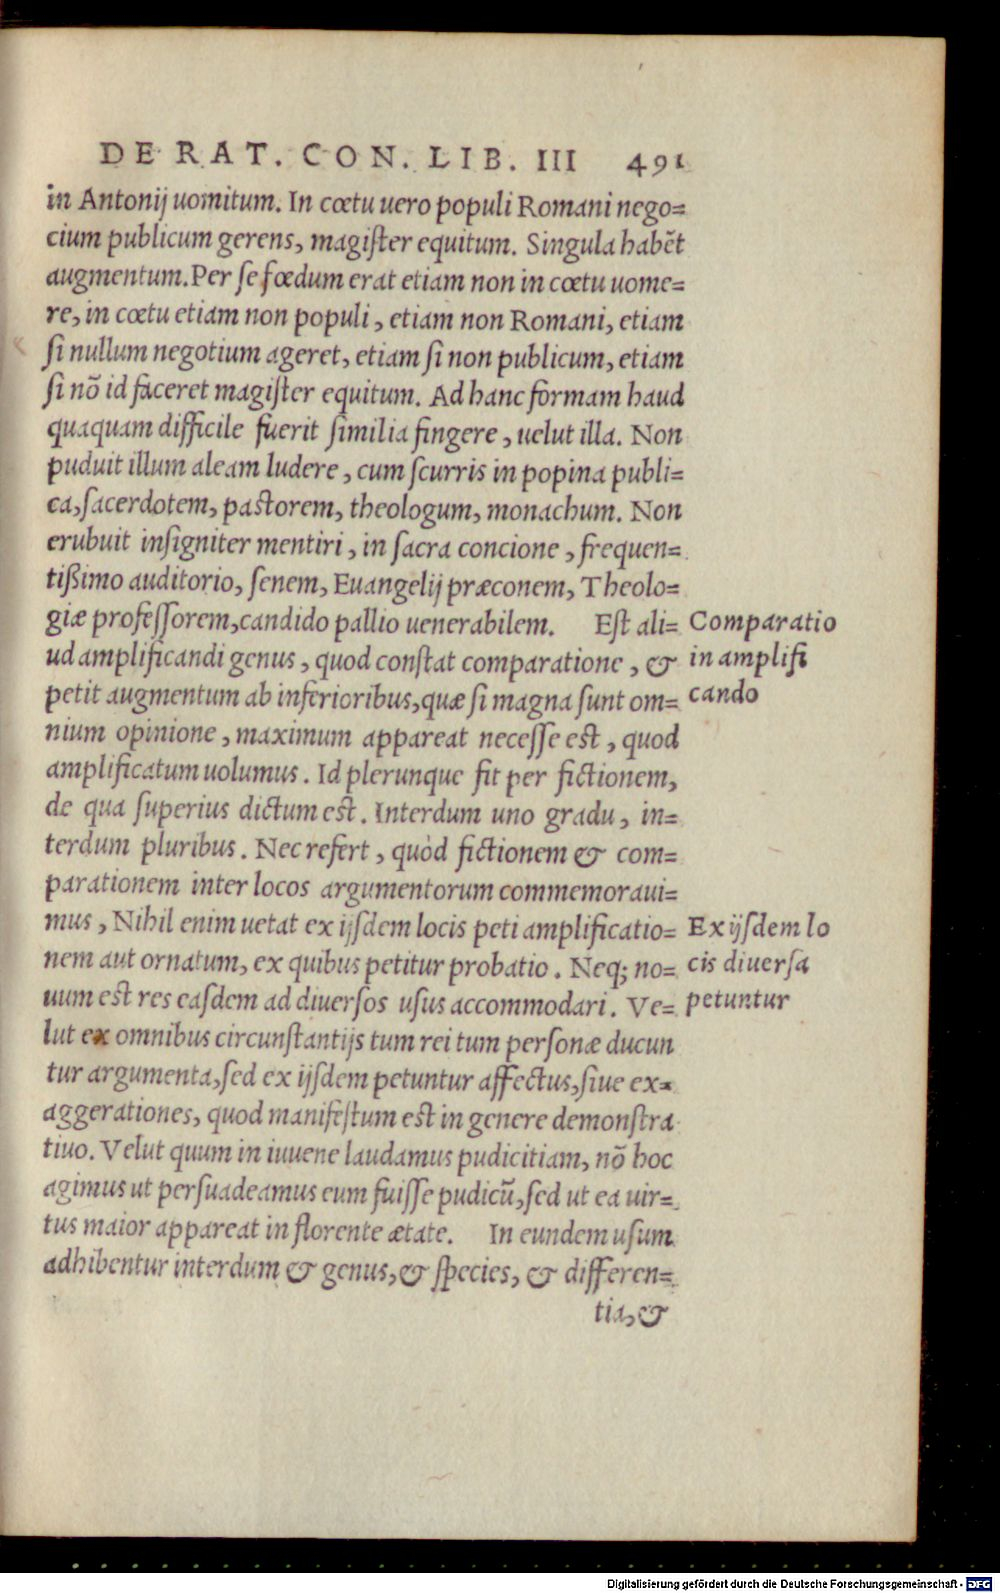 DE RAT. CON. LIB. III 491
in Antonij uomitum. In cœtu uero populi Romani nego=
cium publicum gerens, magiſter equitum. Singula habẽt
augmentum. Per ſe fœdum erat etiam non in cœtu uome=
re, in cœtu etiam non populi, etiam non Romani, etiam
ſi nullum negotium ageret, etiam ſi non publicum, etiam
ſi nõ id faceret magiſter equitum. Ad hanc formam haud
quaquam difficile fuerit ſimilia fingere, uelut illa. Non
puduit illum aleam ludere, cum ſcurris in popina publi=
ca, ſacerdotem, paſtorem, theologum, monachum. Non
erubuit inſigniter mentiri, in ſacra concione, frequen=
tißimo auditorio, ſenem, Euangelij præconem, Theolo=
giæ profeſſorem, candido pallio uenerabilem. Eſt ali=
ud amplificandi genus, quod conſtat comparatione, &
petit augmentum ab inferioribus, quæ ſi magna ſunt om=
nium opinione, maximum appareat neceſſe eſt, quod
amplificatum uolumus. Id plerunque fit per fictionem,
de qua ſuperius dictum eſt. Interdum uno gradu, in=
terdum pluribus. Nec refert, quòd fictionem & com=
parationem inter locos argumentorum commemoraui=
mus, Nihil enim uetat ex ijſdem locis peti amplificatio=
nem aut ornatum, ex quibus petitur probatio. Neq; no=
uum eſt res eaſdem ad diuerſos uſus accommodari. Ve=
lut ex omnibus circunſtantijs tum rei tum perſonæ ducun
tur argumenta, ſed ex ijſdem petuntur affectus, ſiue ex=
aggerationes, quod manifeſtum eſt in genere demonſtra
tiuo. Velut quum in iuuene laudamus pudicitiam, nõ hoc
agimus ut perſuadeamus eum fuiſſe pudicũ, ſed ut ea uir=
tus maior appareat in florente ætate. In eundem uſum
adhibentur interdum & genus, & ſpecies, & differen=
tia, &
Comparatio
in amplifi
cando
Ex ijſdem lo
cis diuerſa
petuntur
Digitalisierung gefördert durch die Deutsche Forschungsgemeinschaft - DFG